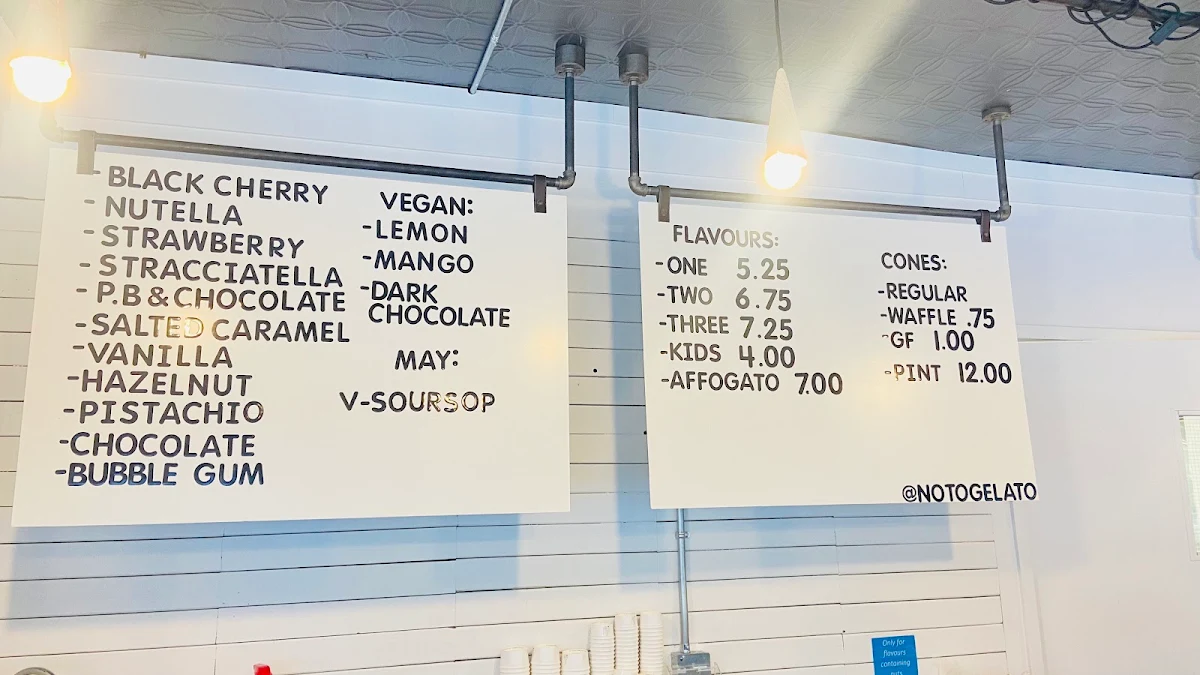 -BLACK CHERRY
-NUTELLA
-STRAWBERRY
-STRACCIATELLA
-P.B & CHOCOLATE
-SALTED CARAMEL
-VANILLA
-HAZELNUT
-PISTACHIO
-CHOCOLATE
-BUBBLE GUM
VEGAN:
-LEMON
-MANGO
-DARK
CHOCOLATE
MAY:
V-SOURSOP
FLAVOURS:
-ONE 5.25
-TWO 6.75
-THREE 7.25
-KIDS 4.00
-AFFOGATO 7.00
CONES:
-REGULAR
-WAFFLE .75
-GF 1.00
-PINT 12.00
@NOTOGELATO
Only for
flavours
containing
nuts